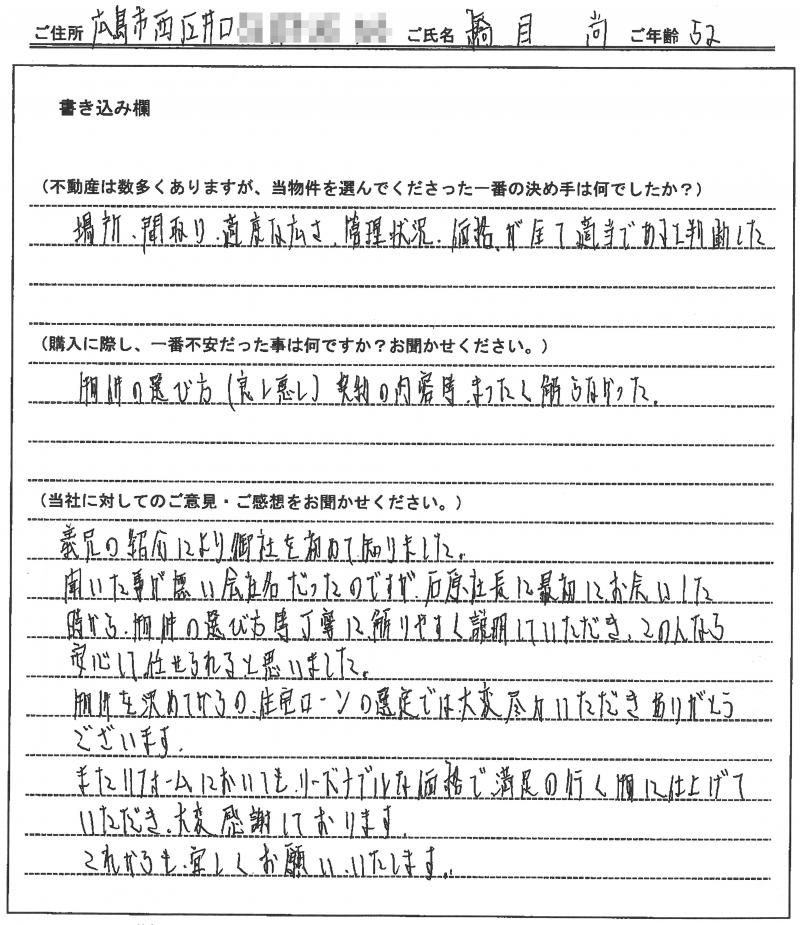 ご住所 広島市西区井口 ご氏名 橋目 尚 ご年齢 52
書き込み欄
(不動産は数多くありますが、当物件を選んでくださった一番の決め手は何でしたか?)
場所、間取り、適度な広さ、管理状況、価格、が全て適当であると判断した
(購入に際し、一番不安だった事は何ですか?お聞かせください。)
物件の選び方(良し悪し)契約の内容等、まったく解らなかった。
(当社に対してのご意見・ご感想をお聞かせください。)
義兄の紹介により御社を初めて知りました。
聞いた事が無い会社名だったのですが、石原社長に最初にお会いした
時から、物件の選び方等丁寧に解りやすく説明していただき、この人なら
安心して任せられると思いました。
物件を決めてからの、住宅ローンの選定では、大変尽力いただきありがとう
ございます。
またリフォームにおいても、リーズナブルな価格で、満足の行く物に仕上げて
いただき、大変感謝しております。
これからも、宜しくお願い、いたします。